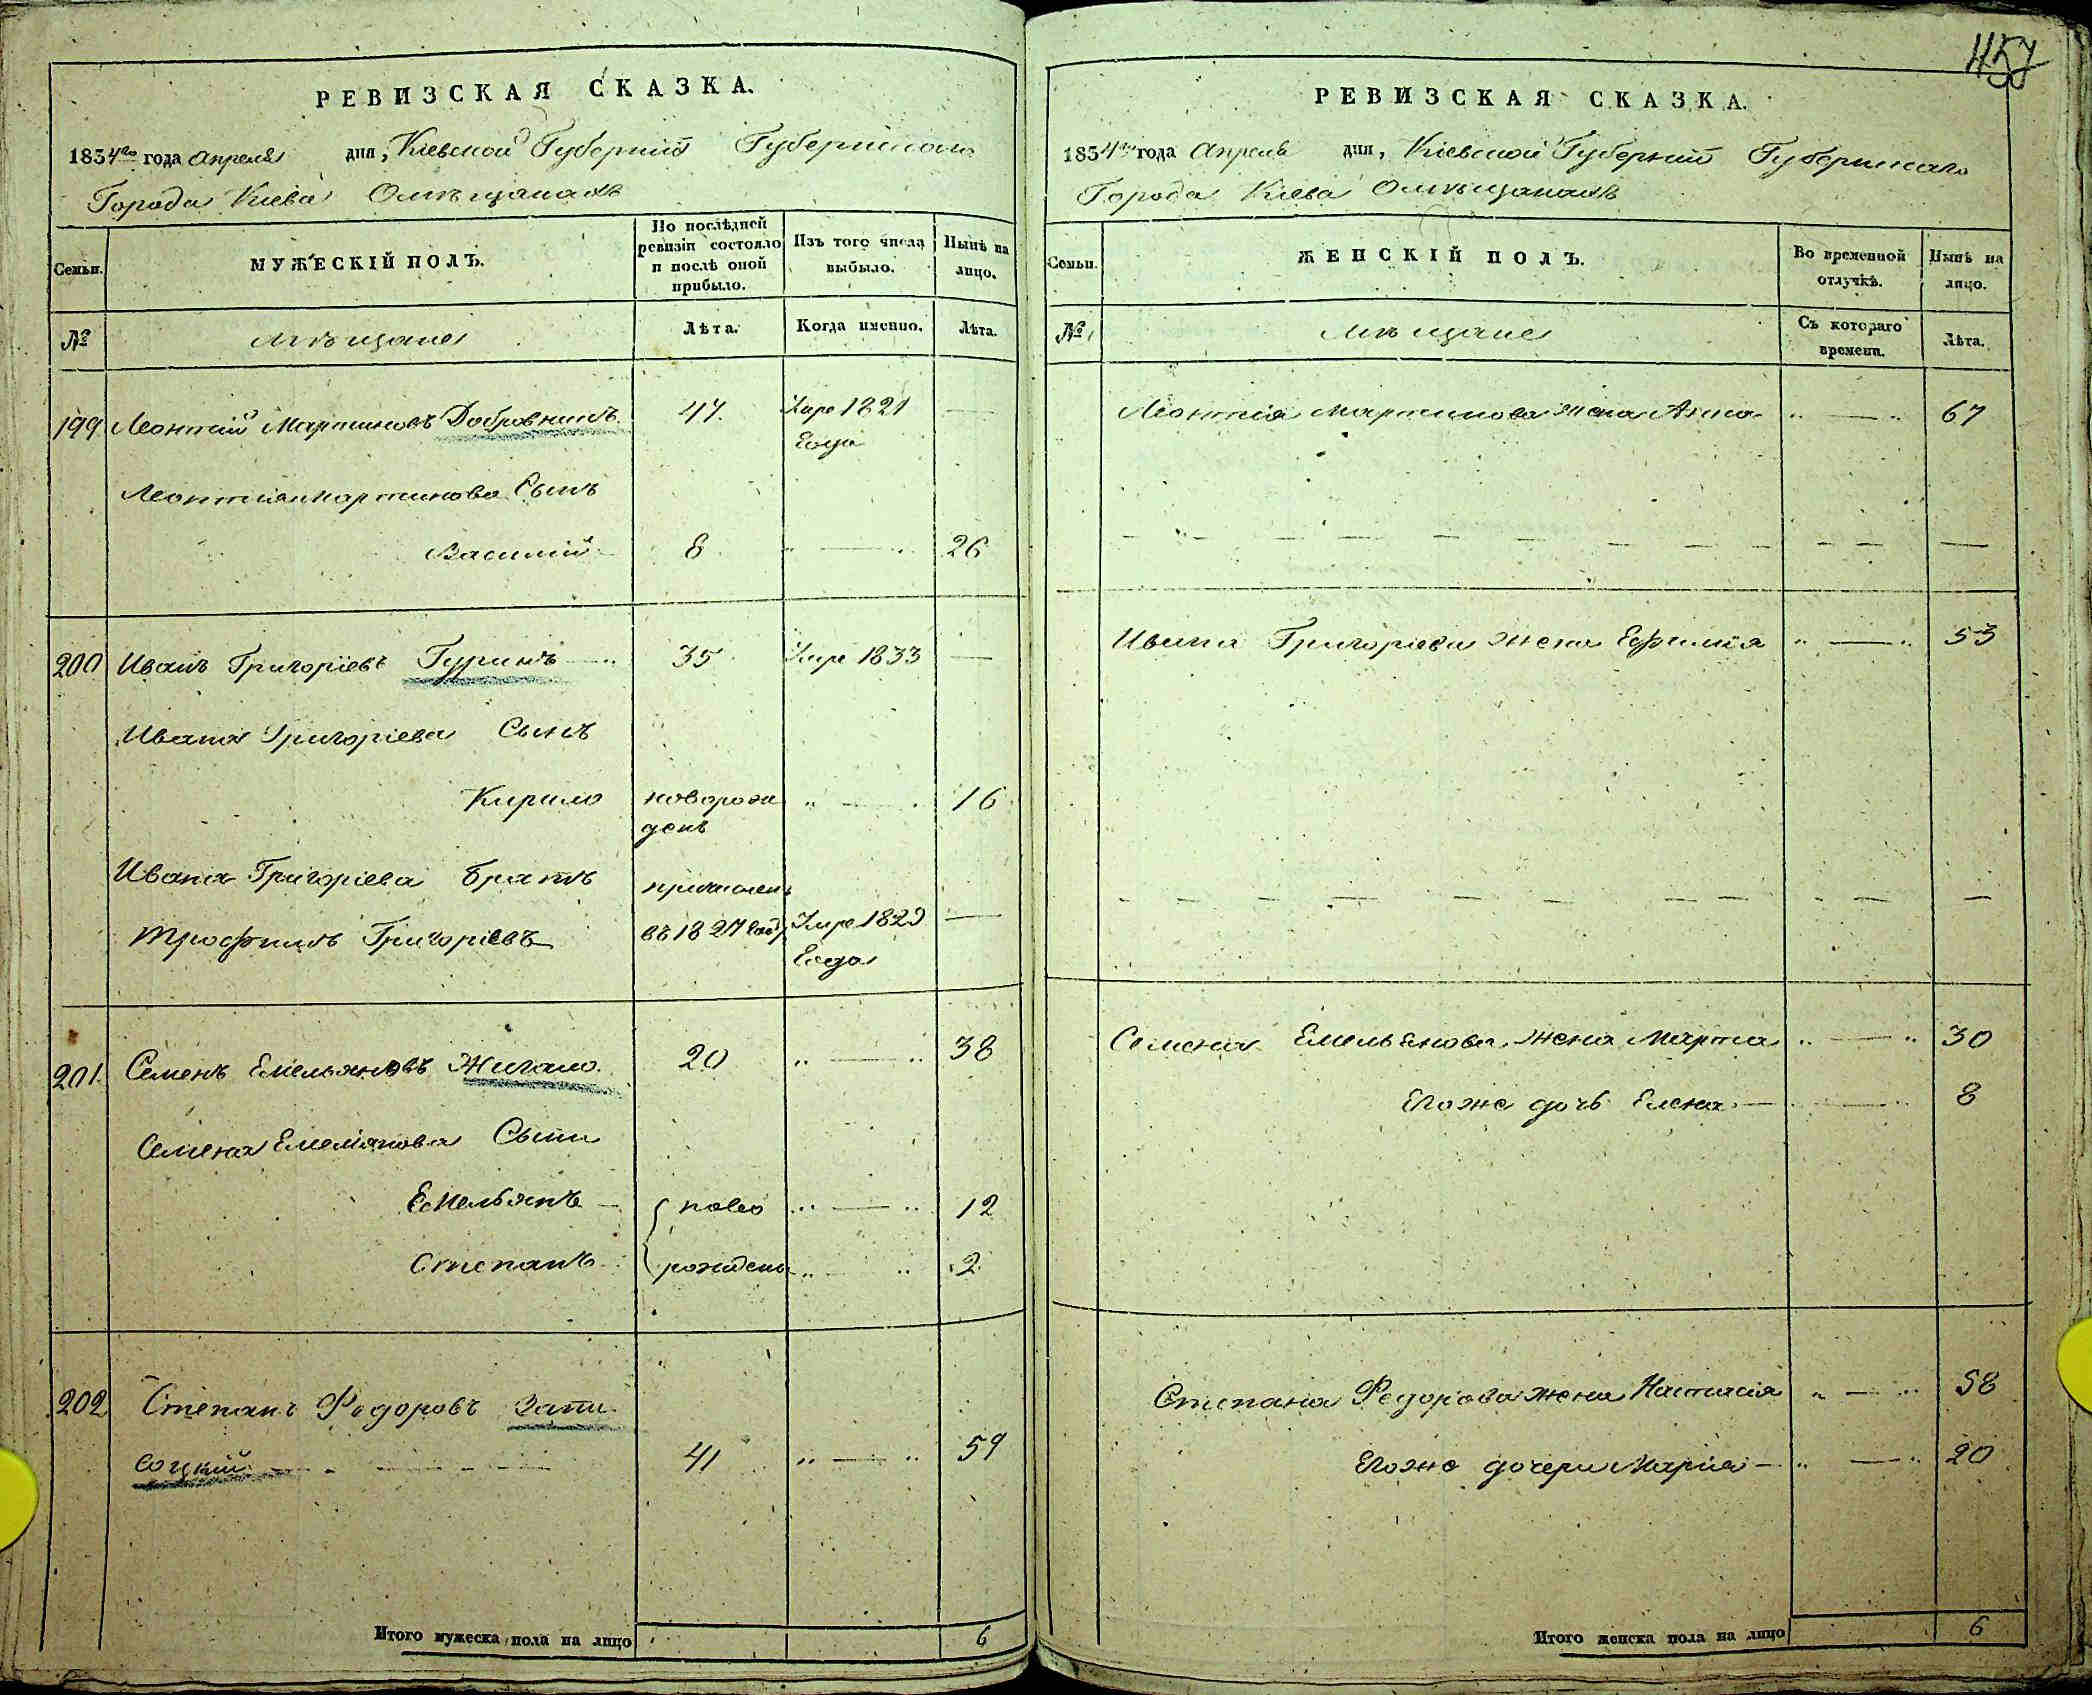 457
РЕВИЗСКАЯ СКАЗКА.
1834го года Апреля дня, Кіевской Губерніи Губернскаго
Города Кіева Омѣщанахъ
Семьи. МУЖЕСКІЙ ПОЛЪ. По послѣдней ревизіи состояло и послѣ оной прибыло. Изъ того числа выбыло. Нынѣ на лицо.
№ Мѣщане Лѣта. Когда именно. Лѣта.
199 Леонтій Мартиновъ Добровникъ 47 Умре 1821 —
Года
Леонтія мартинова Сынъ
Василій 8 „ — „ 26
200 Иванъ Григоріевъ Гуринъ 35 Умре 1833 —
Ивана Григоріева Сынъ
Кирило новорож „ — „ 16
денъ
Ивана Григоріева братъ причисленъ
Трофимъ Григоріевъ въ 1827 году Умре 1829 —
Года
201 Семенъ Емельяновъ Жигало 20 „ — „ 38
Семена Емеліянова Сыни
Емельянъ — { ново „ — „ 12
Степанъ рождены „ — „ 2
202 Степанъ Федоровъ Запи
соцкій 41 „ — „ 59
Итого мужеска пола на лицо 6
РЕВИЗСКАЯ СКАЗКА.
1834го года Апреля дня, Кіевской Губерніи Губернскаго
Города Кіева Омѣщанахъ
Семьи. ЖЕНСКІЙ ПОЛЪ. Во временной отлучкѣ. Нынѣ на лицо.
№ Мѣщане Съ котораго времени. Лѣта.
Леонтія Мартинова жена Анна „ — „ 67
Ивана Григоріева жена Ефимія „ — „ 53
Семена Емельенова жена Марта „ — „ 30
Егоже дочь Елена — 8
Степана Федорова жена Настасія „ — „ 58
Егоже дочери Марія — „ — „ 20
Итого женска пола на лицо 6